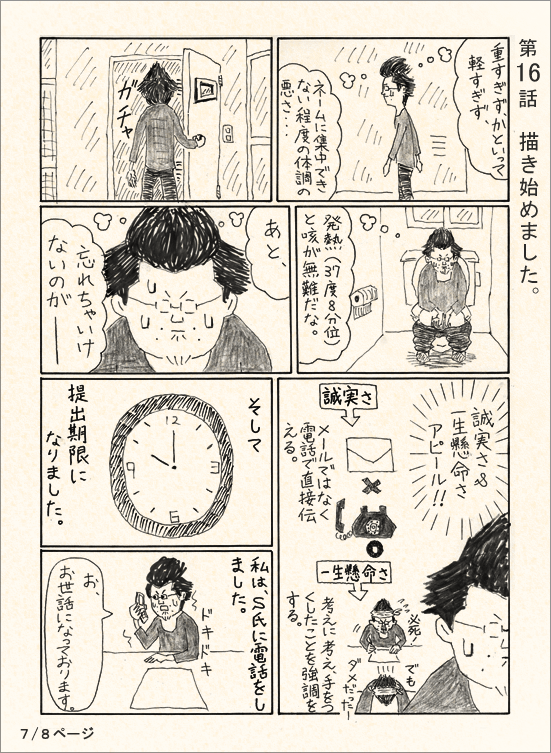 第16話　描き始めました。
重すぎず、かといって
軽すぎず、
ネームに集中でき
ない程度の体調の
悪さ・・・
ガチャ
発熱（37度8分位）
と咳が無難だな。
あと、
忘れちゃいけ
ないのが
誠実さ&
一生懸命さ
アピール!!
誠実さ
メールではなく
電話で直接伝
える。
一生懸命さ
必死!
でも
ダメだったー
考えに考え手をつ
くしたことを強調を
する。
そして
12
3
6
9
提出期限に
なりました。
私は、S氏に電話をし
ました。
ドキドキ
お、
お世話になっております。
7/8ページ